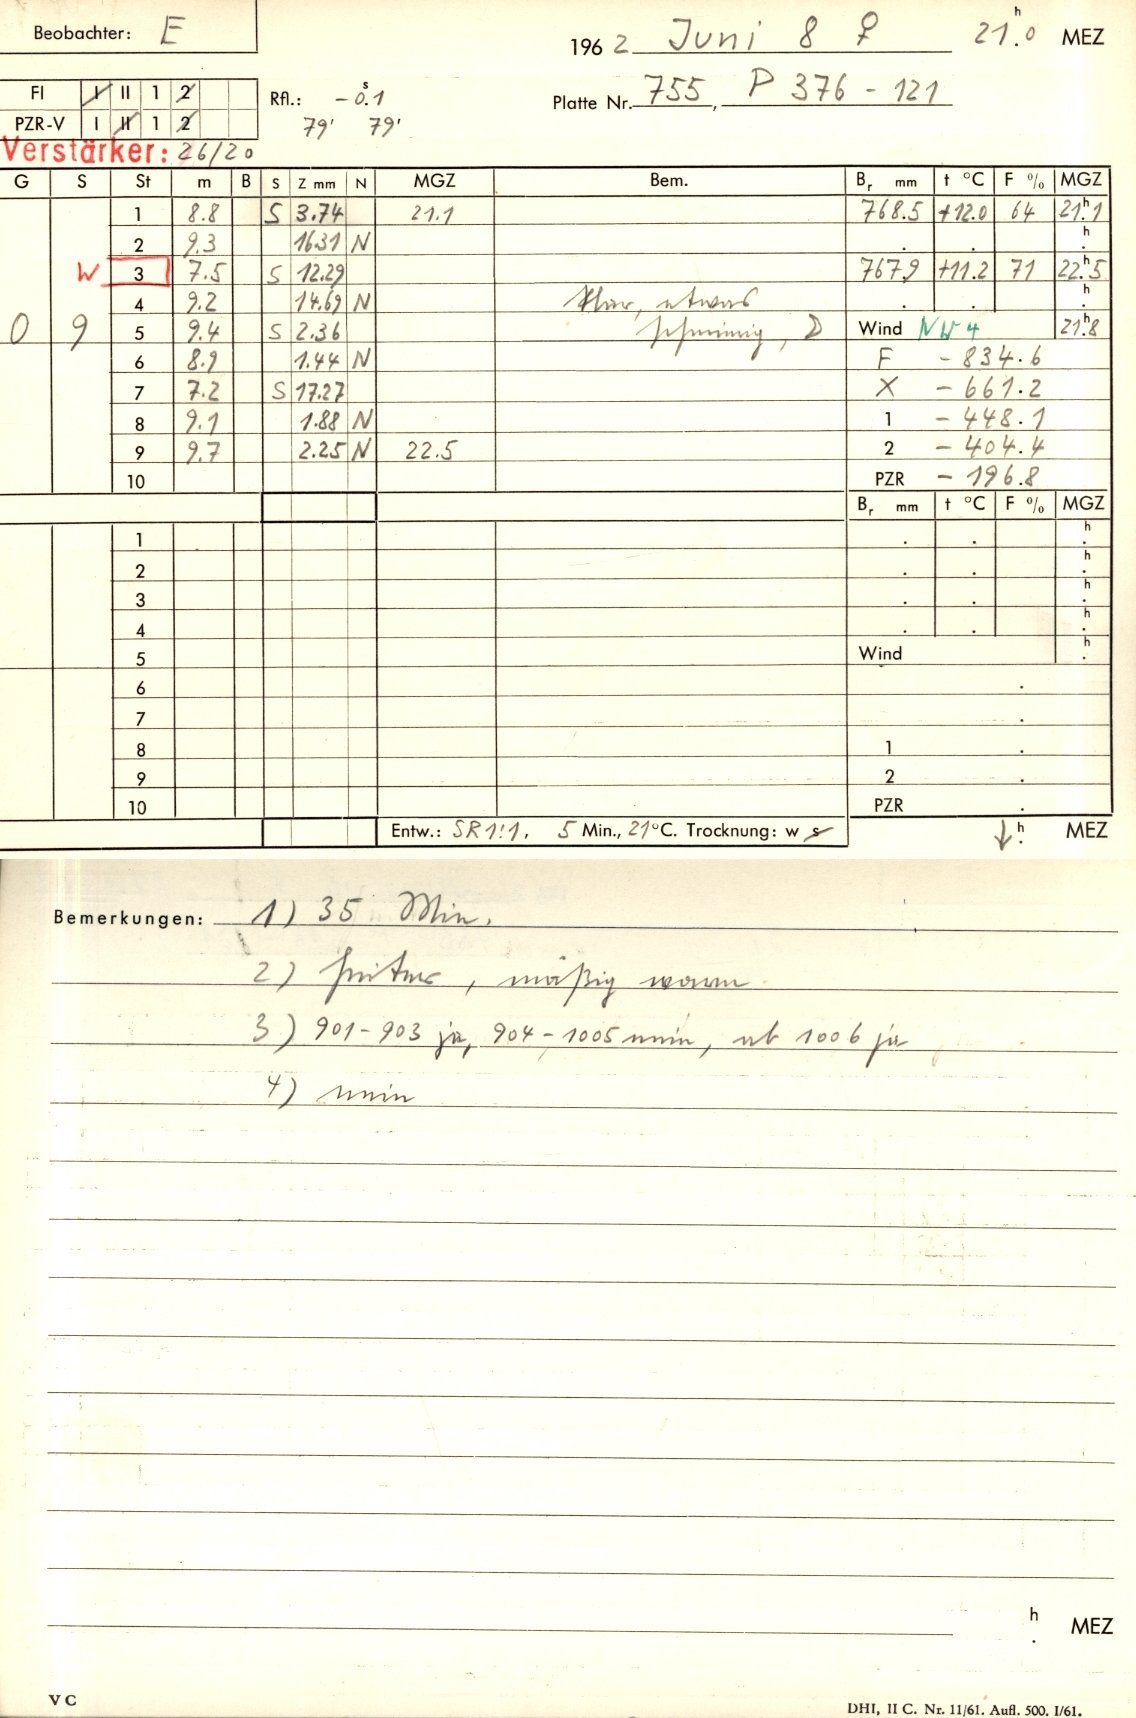 Beobachter: E
196 2 Juni 8 ♀ 21.0 h MEZ
FI I II 1 2
Rfl.: - 0.1 s
Platte Nr. 755, P 376 - 121
PZR-V I II 1 2
79' 79'
Verstärker: 26/20
G S St m B S Z mm N MGZ Bem. Br mm t °C F % MGZ
1 8.8 S 3.74 21.1 768.5 +12.0 64 21.1 h
2 9.3 16.31 N . . h
W 3 7.5 S 12.29 767.9 +11.2 71 22.5 h
4 9.2 14.69 N klar, etwas . . h
0 9 5 9.4 S 2.36 schmierig, D Wind NW 4 21.8 h
6 8.9 1.44 N F - 834.6
7 7.2 S 17.27 X - 661.2
8 9.1 1.88 N 1 - 448.1
9 9.7 2.25 N 22.5 2 - 404.4
10 PZR - 196.8
Br mm t °C F % MGZ
1 . . h
2 . . h
3 . . h
4 . . h
5 Wind h
6 .
7 .
8 1 .
9 2 .
10 PZR .
Entw.: SR 1:1. 5 Min., 21 °C. Trocknung: w s ↓ h MEZ
Bemerkungen: 1) 35 Min.
2) heiter, mäßig warm
3) 901 - 903 ja, 904 - 1005 nein, ab 1006 ja
4) nein
h
. MEZ
V C
DHI, II C. Nr. 11/61. Aufl. 500. I/61.